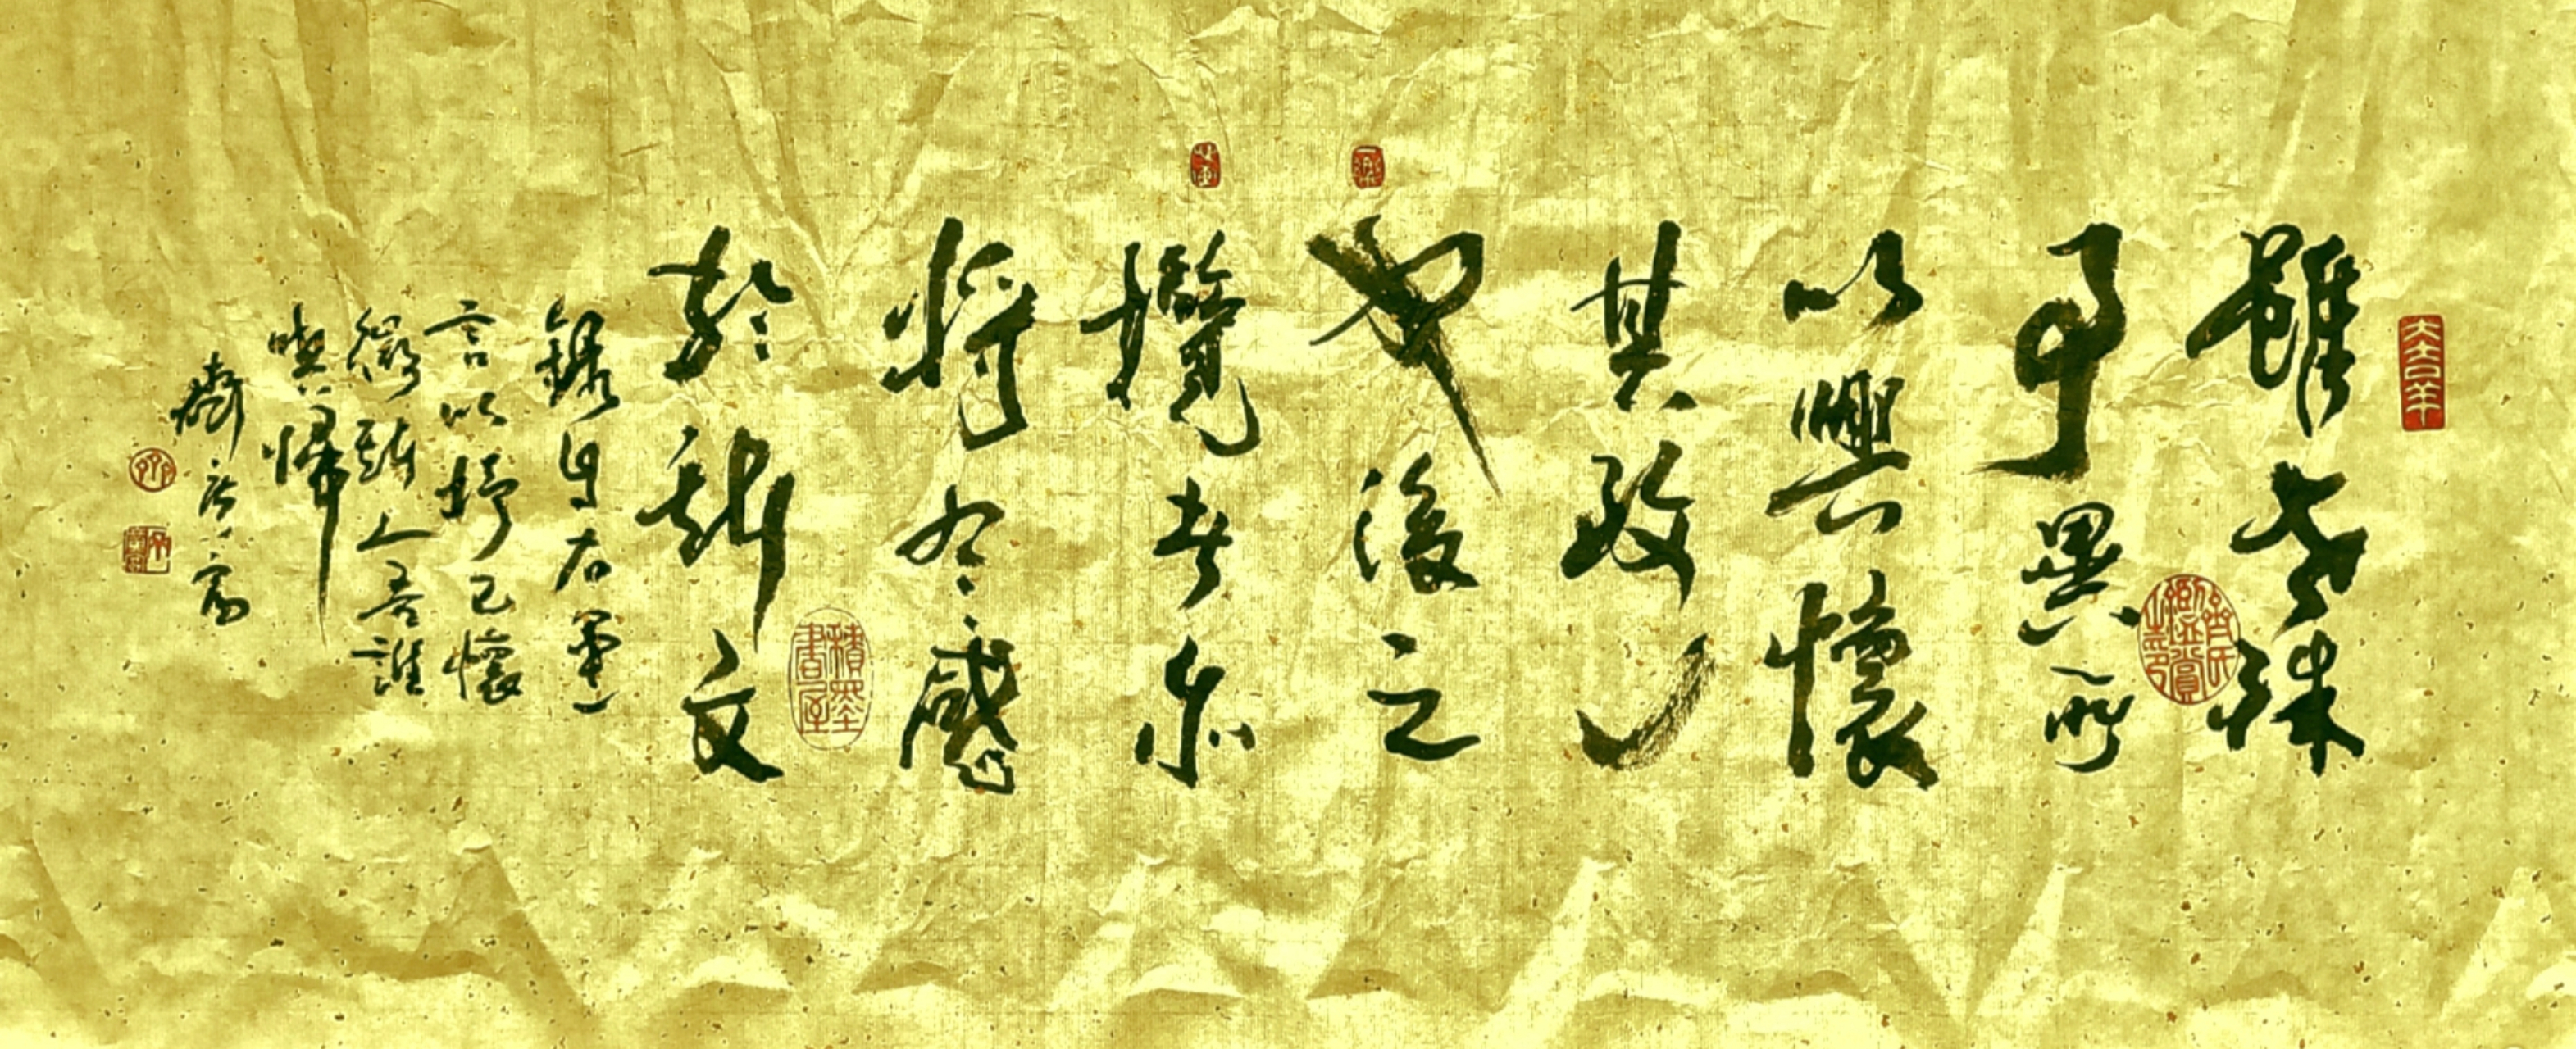 雖世殊
事異所
以興懷
其致一
也後之
攬者亦
將有感
於斯文
錄自右軍
言以抒己懷
微斯人吾誰
與歸
積墨書屋